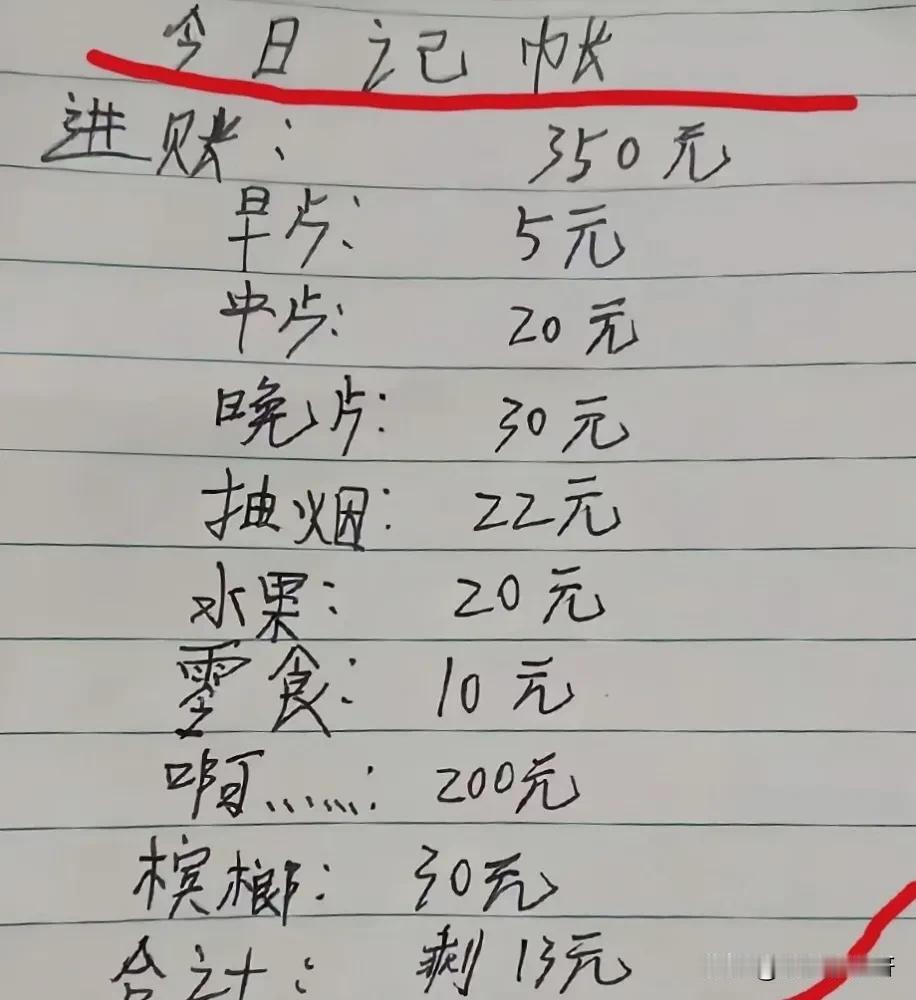 今日记帐
进账： 350元
早片： 5元
中片： 20元
晚片： 30元
抽烟： 22元
水果： 20元
零食： 10元
啊……： 200元
槟榔： 30元
合计： 剩13元